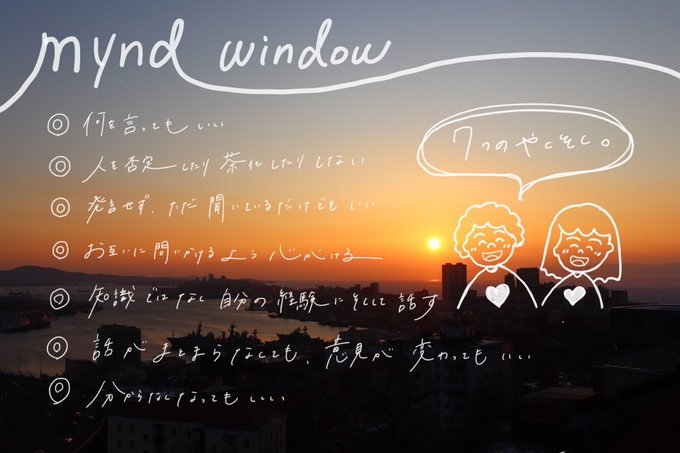 mynd window
◎ 何を言ってもいい
◎ 人を否定したり茶化したりしない
◎ 発言せず、ただ聞いているだけでもいい
◎ お互いに問いかけるよう心がける
◎ 知識ではなく自分の経験にそくして話す
◎ 話がまとまらなくても、意見が変わってもいい
◎ 分からなくなってもいい
7つのやくそく。